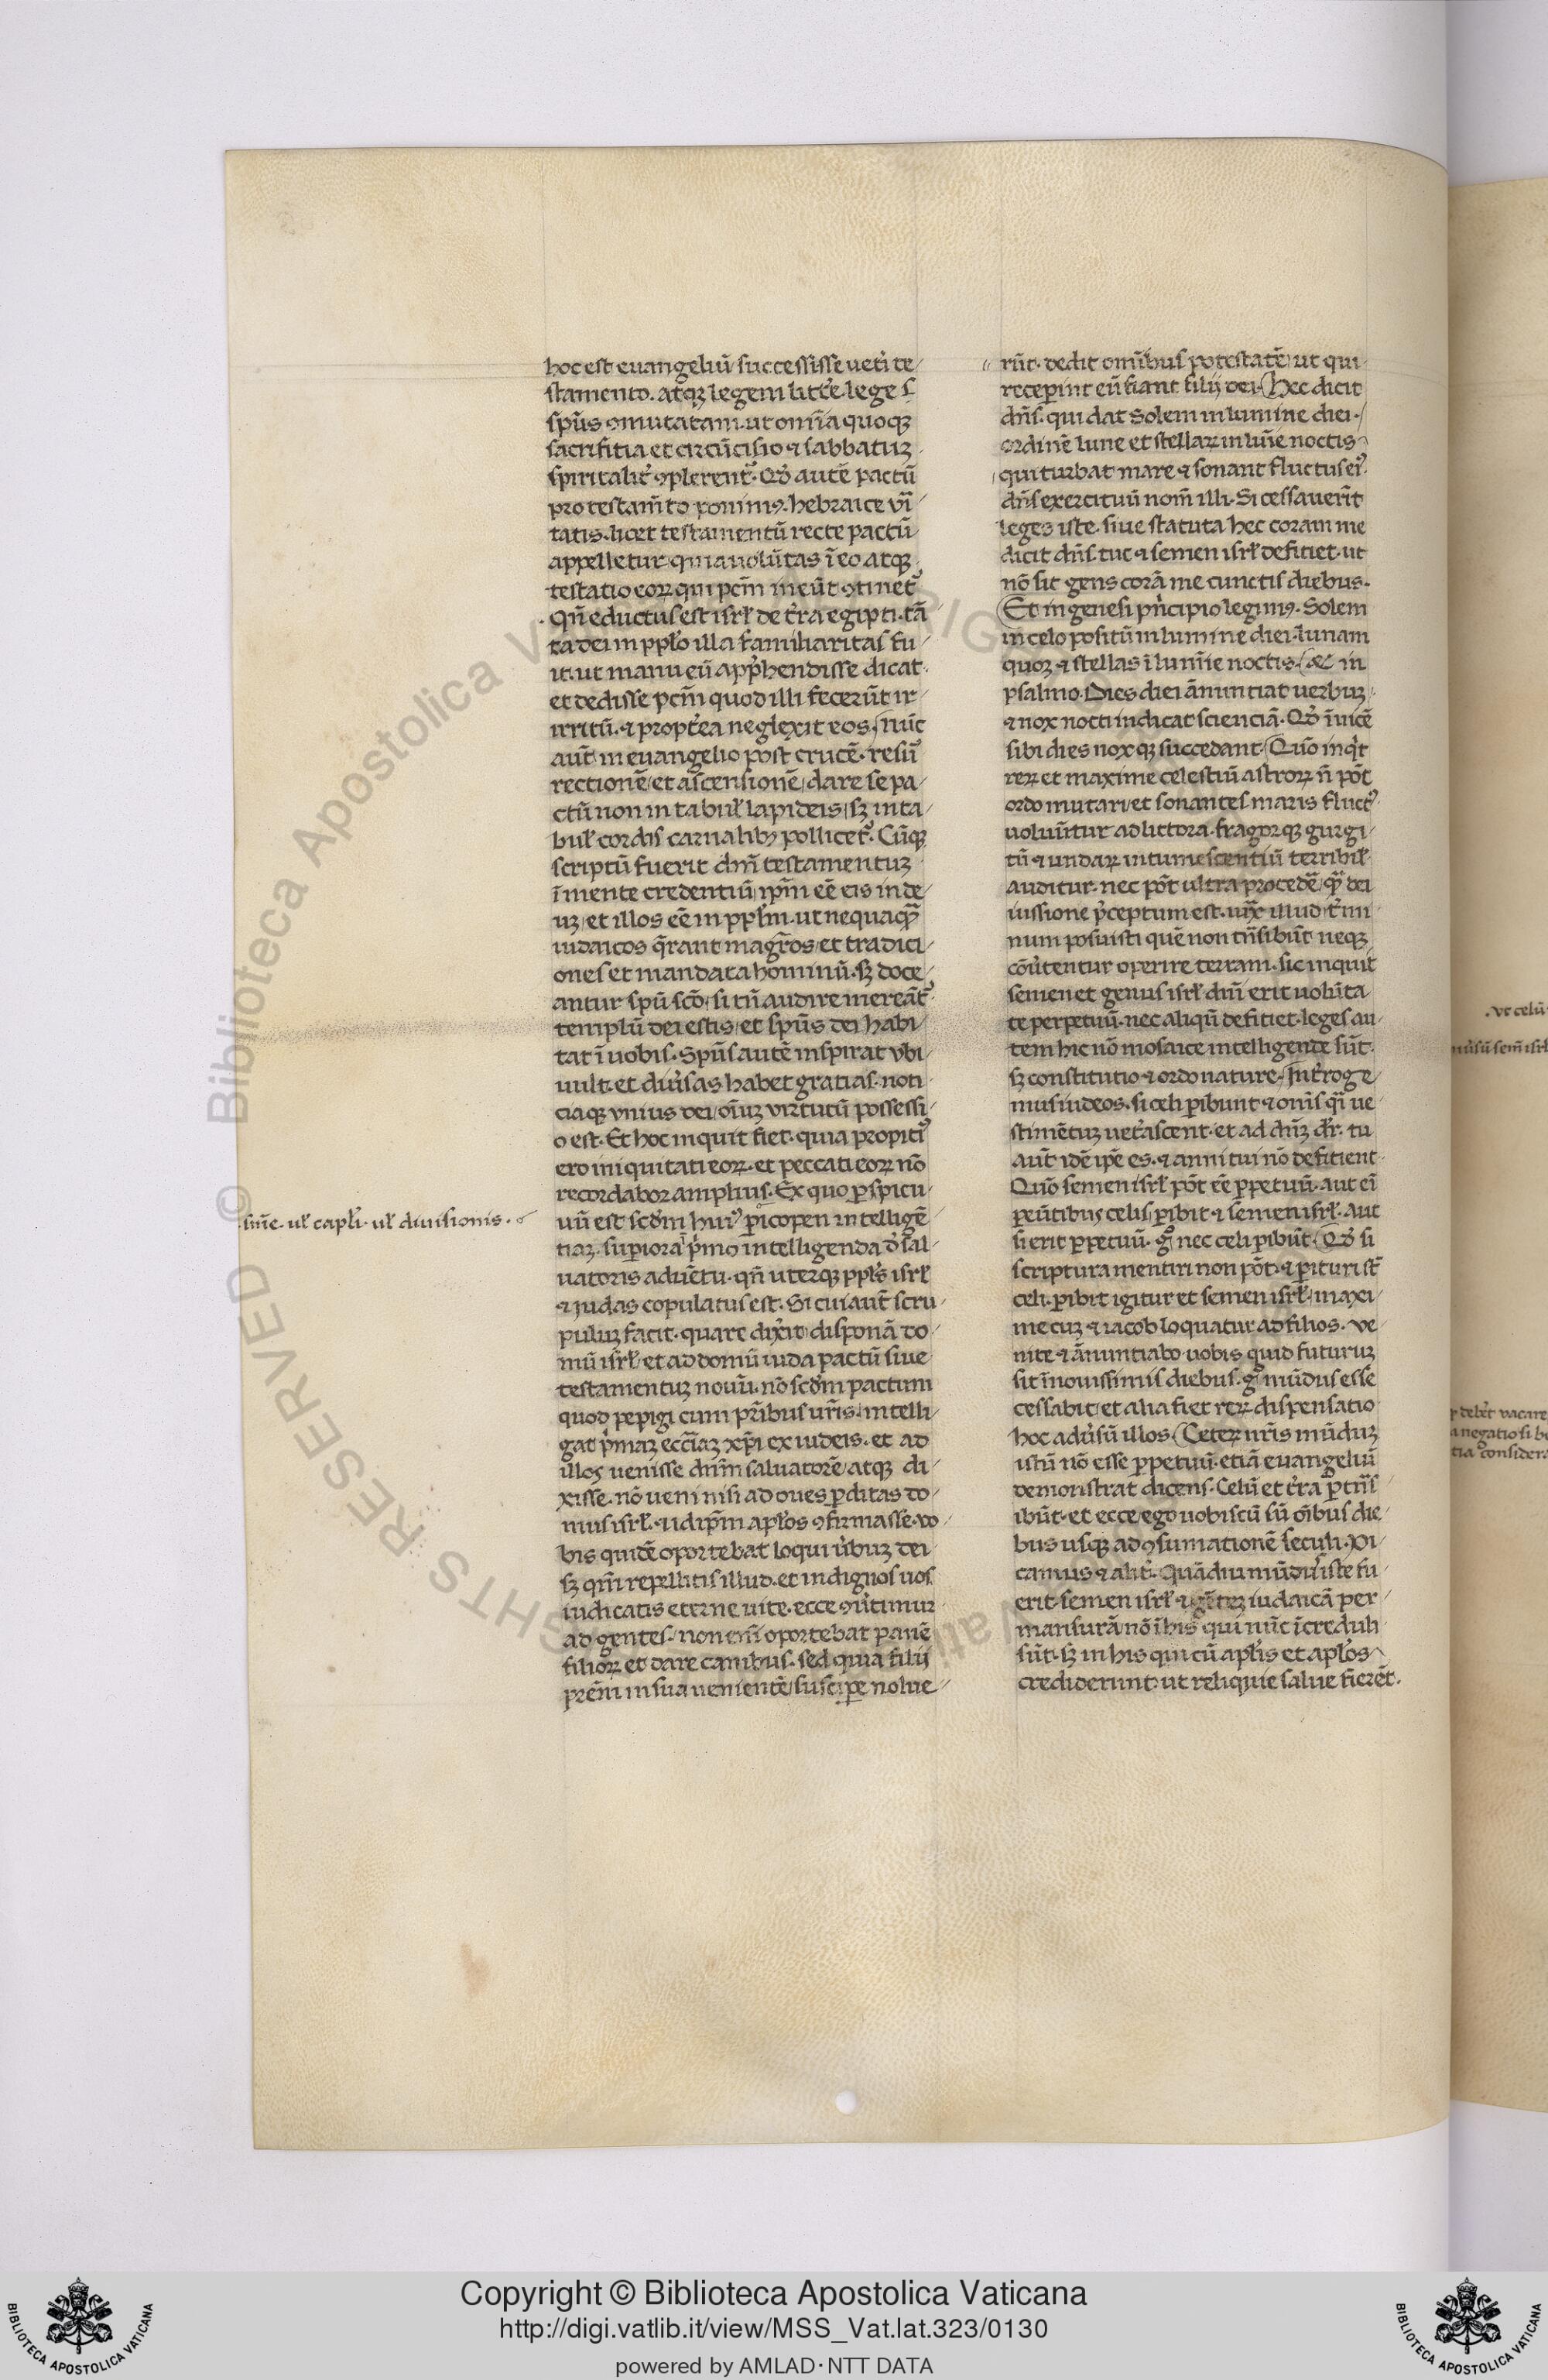 hoc est euangeliũ successisse uet̾i te/
stamento. atqꝫ legem litt̾e. lege s
sp̃us ꝯmutatam. ut om̃ia quoqꝫ
sacrifitia et circũcisio ⁊ sabbatuꝫ
spiritalit̾ ꝯplerent᷑. Qđ autẽ pactũ
pro testam̃to ponimꝰ. hebraice ṽi/
tatis. licet testamentũ recte pactũ
appelletur. quia uolũtas ĩ eo atqꝫ
testatio eoꝝ qui pctm̃ ineũt ꝯtinet᷑
Qñ eductus est isrł de t̾ra egipti. tã/
ta dei in ppło illa familiaritas fu/
it. ut manu eũ app̾hendisse dicat᷑.
et dedisse pctm̃ quod illi fecerũt ir/
irritũ. ⁊ propt̾ea neglexit eos. nũc
aut̃ in euangelio post crucẽ. resur̃/
rectionẽ et ascensionẽ dare se pa/
ctũ non in tabuł lapideis sꝫ in ta/
buł cordis carnalibꝰ pollicet᷑. Cũqꝫ
scriptũ fuerit dñi testamentuꝫ
ĩ mente credentiũ ip̃m eẽ eis in de/
uꝫ et illos eẽ in ppłm. ut nequaq̃ꝫ
iudaicos q̃rant magr̃os et tradici/
ones et mandata hominũ. sꝫ doce/
antur spũ scõ. si tñ audire mereãt᷑.
templũ dei estis et sp̃us dei habi/
tat ĩ uobis. Sp̃us autẽ inspirat vbi/
uult. et diu̾sas habet gratias. noti/
ciaqꝫ vnius dei oĩuꝫ virtutũ possessi/
o est. Et hoc inquit fiet. quia propiti᷑
ero iniquitati eoꝝ. et peccati eoꝝ nõ
recordabor amplius. Ex quo ꝑspicu/
·siñe. uł capłi. uł diuisionis.
uũ est scđm huiꝰ ꝑicopen intelligẽ
tiaꝫ. suꝑiora p̾mo intelligenda đ sal/
uatoris aduẽtu. qñ uterqꝫ ppłs isrł
⁊ iudas copulatus est. Si cui aut̃ scru/
puluꝫ facit. quare dixit disponã do/
mũ isrł et ad domũ iuda pactũ siue
testamentuꝫ nouũ. nõ scđm pactum
quod pepigi cum pr̃ibus ur̃is. intelli/
gat p̾maꝫ eccłiaꝫ xp̃i ex iudeis. et ad
illos uenisse dñm saluatorẽ atqꝫ di/
xisse. nõ ueni nisi ad oues ꝑditas do/
mus isrł. ⁊ id ip̃m apłos ꝯfirmasse. vo/
bis quidẽ oportebat loqui u̾buꝫ dei
sꝫ qm̃ repellitis illud. et indignos uos
iudicatis eterne uite. ecce ꝯu̾timur
ad gentes. non eni᷑ oportebat panẽ
filioꝝ et dare canibus. sed quia filij
prẽm in sua uenientẽ suscipe nolue/
rũt. dedit omĩbus potestatẽ ut qui
receꝑint eũ fiant filij dei. Hec dicit
dñs. qui dat Solem in lumine diei.
ordinẽ lune et stellaꝝ in luĩe noctis
qui turbat mare ⁊ sonant fluctus ei᷑.
dñs exercituũ nom̃ illi. Si cessauerĩt
leges iste. siue statuta hec coram me
dicit dñs. tuc ⁊ semen isrł defitiet. ut
nõ sit gens corã me cunctis diebus.
Et in genesi pñcipio legimꝰ. Solem
in celo positũ in lumine diei. lunam
quoꝫ ⁊ stellas ĩ lumĩe noctis. ⁊ in
psalmo. Dies diei ãnuntiat uerbuꝫ
⁊ nox nocti indicat scienciã. Qđ ĩuicẽ
sibi dies nox qꝫ succedant. Quõ inq̾t
reꝝ et maxime celestiũ astroꝝ ñ põt
ordo mutari et sonantes maris fluct᷑
uoluũtur ad littora. fragorqꝫ gurgi/
tũ ⁊ undaꝝ intumescentiũ terribił
auditur. nec põt ultra procedẽ q̃ dei
iussione p̾ceptum est. iux̃ illud t̾mi
num posuisti quẽ non trñsibũt neqꝫ
cõu̾tentur operire terram. sic inquit
semen et genus isrł dñi erit uolũta
te perpetuũ. nec aliqñ defitiet. leges au/
tem hic nõ mosaice intelligende sũt.
sꝫ constitutio ⁊ ordo nature. Int̾roge
mus iudeos. si celi ꝑibunt ⁊ om̃s q̃i ue
stimẽtuꝫ uet̾ascent. et ad dñꝫ dr̃. tu
aut̃ idẽ ip̃e es. ⁊ anni tui nõ defitient
Quõ semen isrł põt eẽ ꝑpetuũ. aut ei᷑
ꝑeũtibus celis ꝑibit ⁊ semen isrł. aut
si erit ꝑpetuũ. gͦ nec celi ꝑibũt. Qđ si
scriptura mentiri non põt. ⁊ ꝑituri st̃
celi. ꝑibit igitur et semen isrł. maxi
me cuꝫ ⁊ iacob loquatur ad filios. ve
nite ⁊ ãnuntiabo uobis quid futuruꝫ
sit ĩ nouissimis diebus. gͦ mũdus esse
cessabit et alia fiet reꝝ dispensatio
hoc adu̾sũ illos. Ceteꝝ nr̃is mũduꝫ
istũ nõ esse ꝑpetuũ. etiã euangeliũ
demonstrat dicens. Celũ et t̾ra ꝑtñs
ibũt. et ecce ego uobiscũ sũ oĩbus die
bus usqꝫ ad ꝯsumationẽ seculi. Di
camus ⁊ alit̾. Quãdiu mũdus iste fu/
erit. semen isrł ⁊ gẽteꝫ iudaicã per
mansurã nõ ĩ his qui nũc ĩcreduli
sũt. sꝫ in his qui cũ apłis et apłos
crediderunt. ut reliquie salue fierẽt.
Copyright © Biblioteca Apostolica Vaticana
http://digi.vatlib.it/view/MSS_Vat.lat.323/0130
powered by AMLAD·NTT DATA
BIBLIOTECA APOSTOLICA VATICANA
BIBLIOTECA APOSTOLICA VATICANA